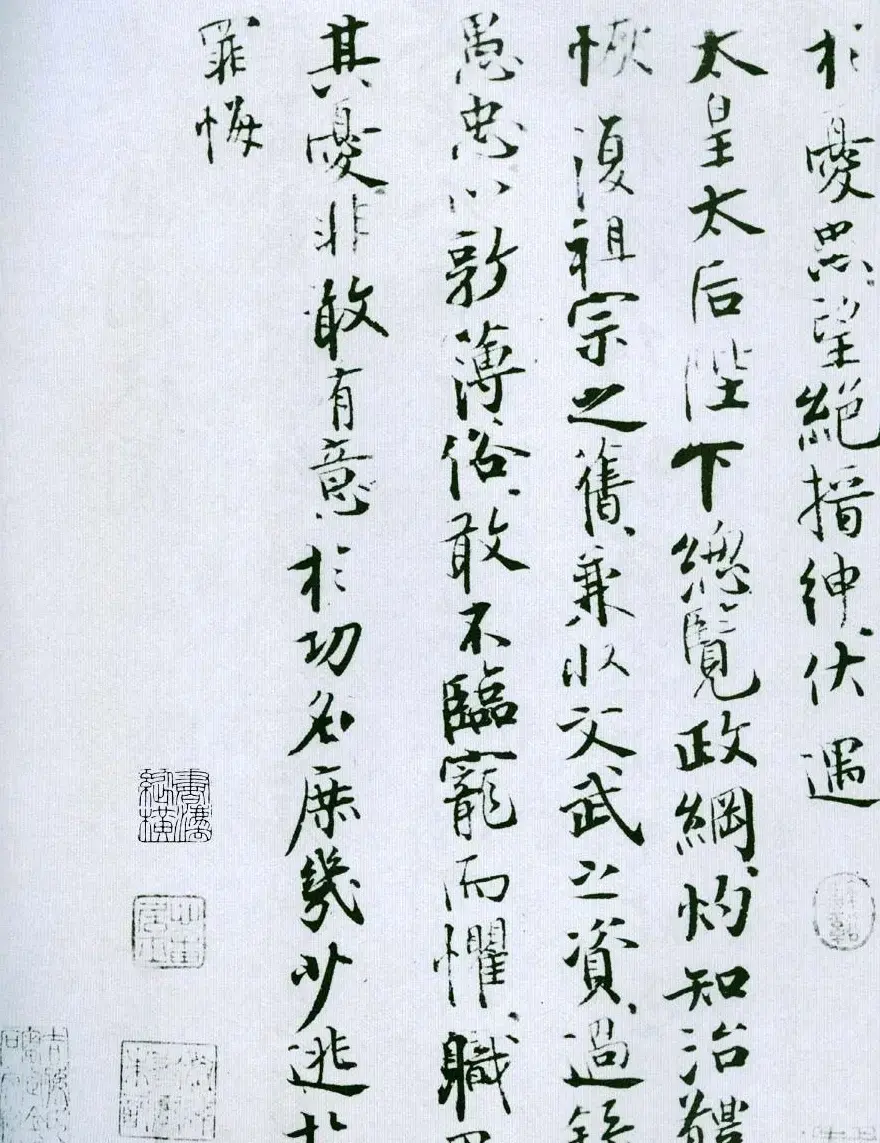 於憂患望絕搢紳伏遇
太皇太后陛下總覽政綱灼知治體
恢復祖宗之舊兼收文武之資過
愚忠以敦薄俗敢不臨寵而懼職
其憂非敢有意於功名庶幾少逃於
罪悔